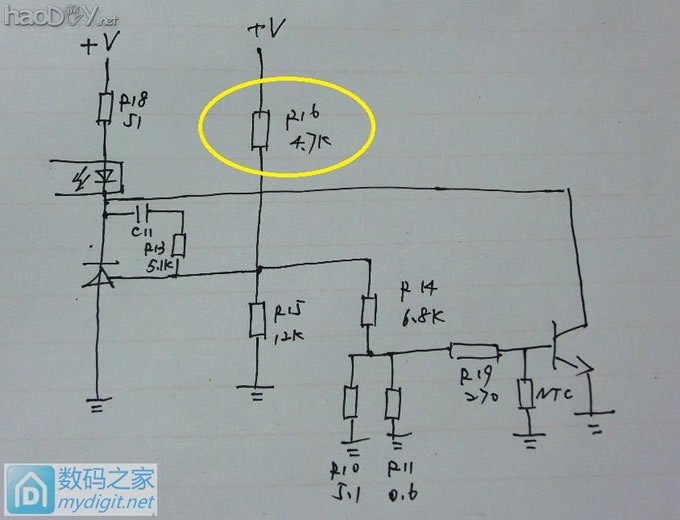 haoDIY.net
+V
+V
R18
51
R16
4.7K
C11
R13
5.1K
R15
12K
R14
6.8K
R19
270
NTC
R10
5.1
R11
0.6
数码之家
mydigit.net